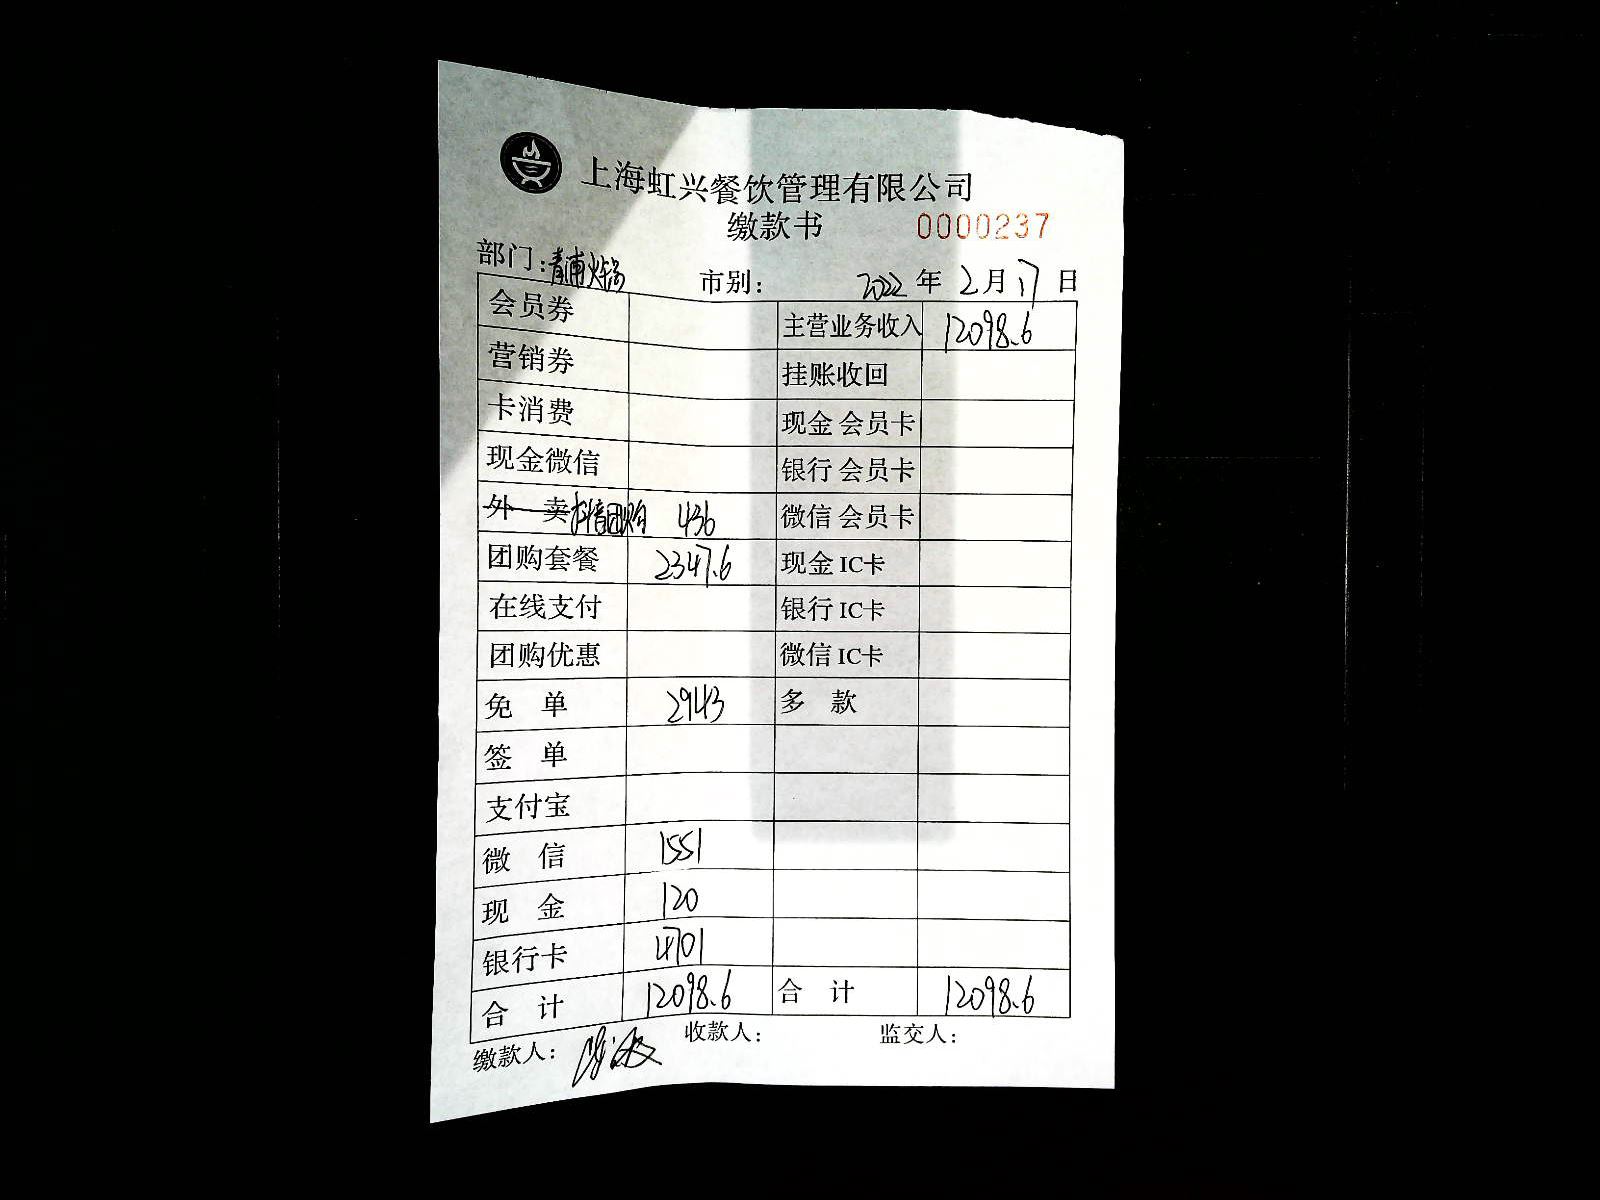 上海虹兴餐饮管理有限公司
缴款书 0000237
部门:青浦火锅 市别: 2022年2月17日
会员券 主营业务收入 12098.6
营销券 挂账收回
卡消费 现金会员卡
现金微信 银行会员卡
外卖 抖音团购 436 微信会员卡
团购套餐 2347.6 现金IC卡
在线支付 银行IC卡
团购优惠 微信IC卡
免单 2943 多款
签单
支付宝
微信 1551
现金 120
银行卡 4701
合计 12098.6 合计 12098.6
缴款人: 收款人: 监交人: